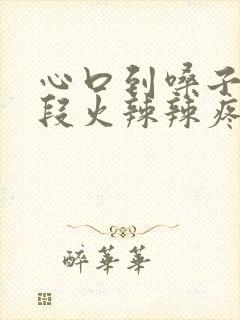 心口到嗓子
段火辣辣疼
醉華華